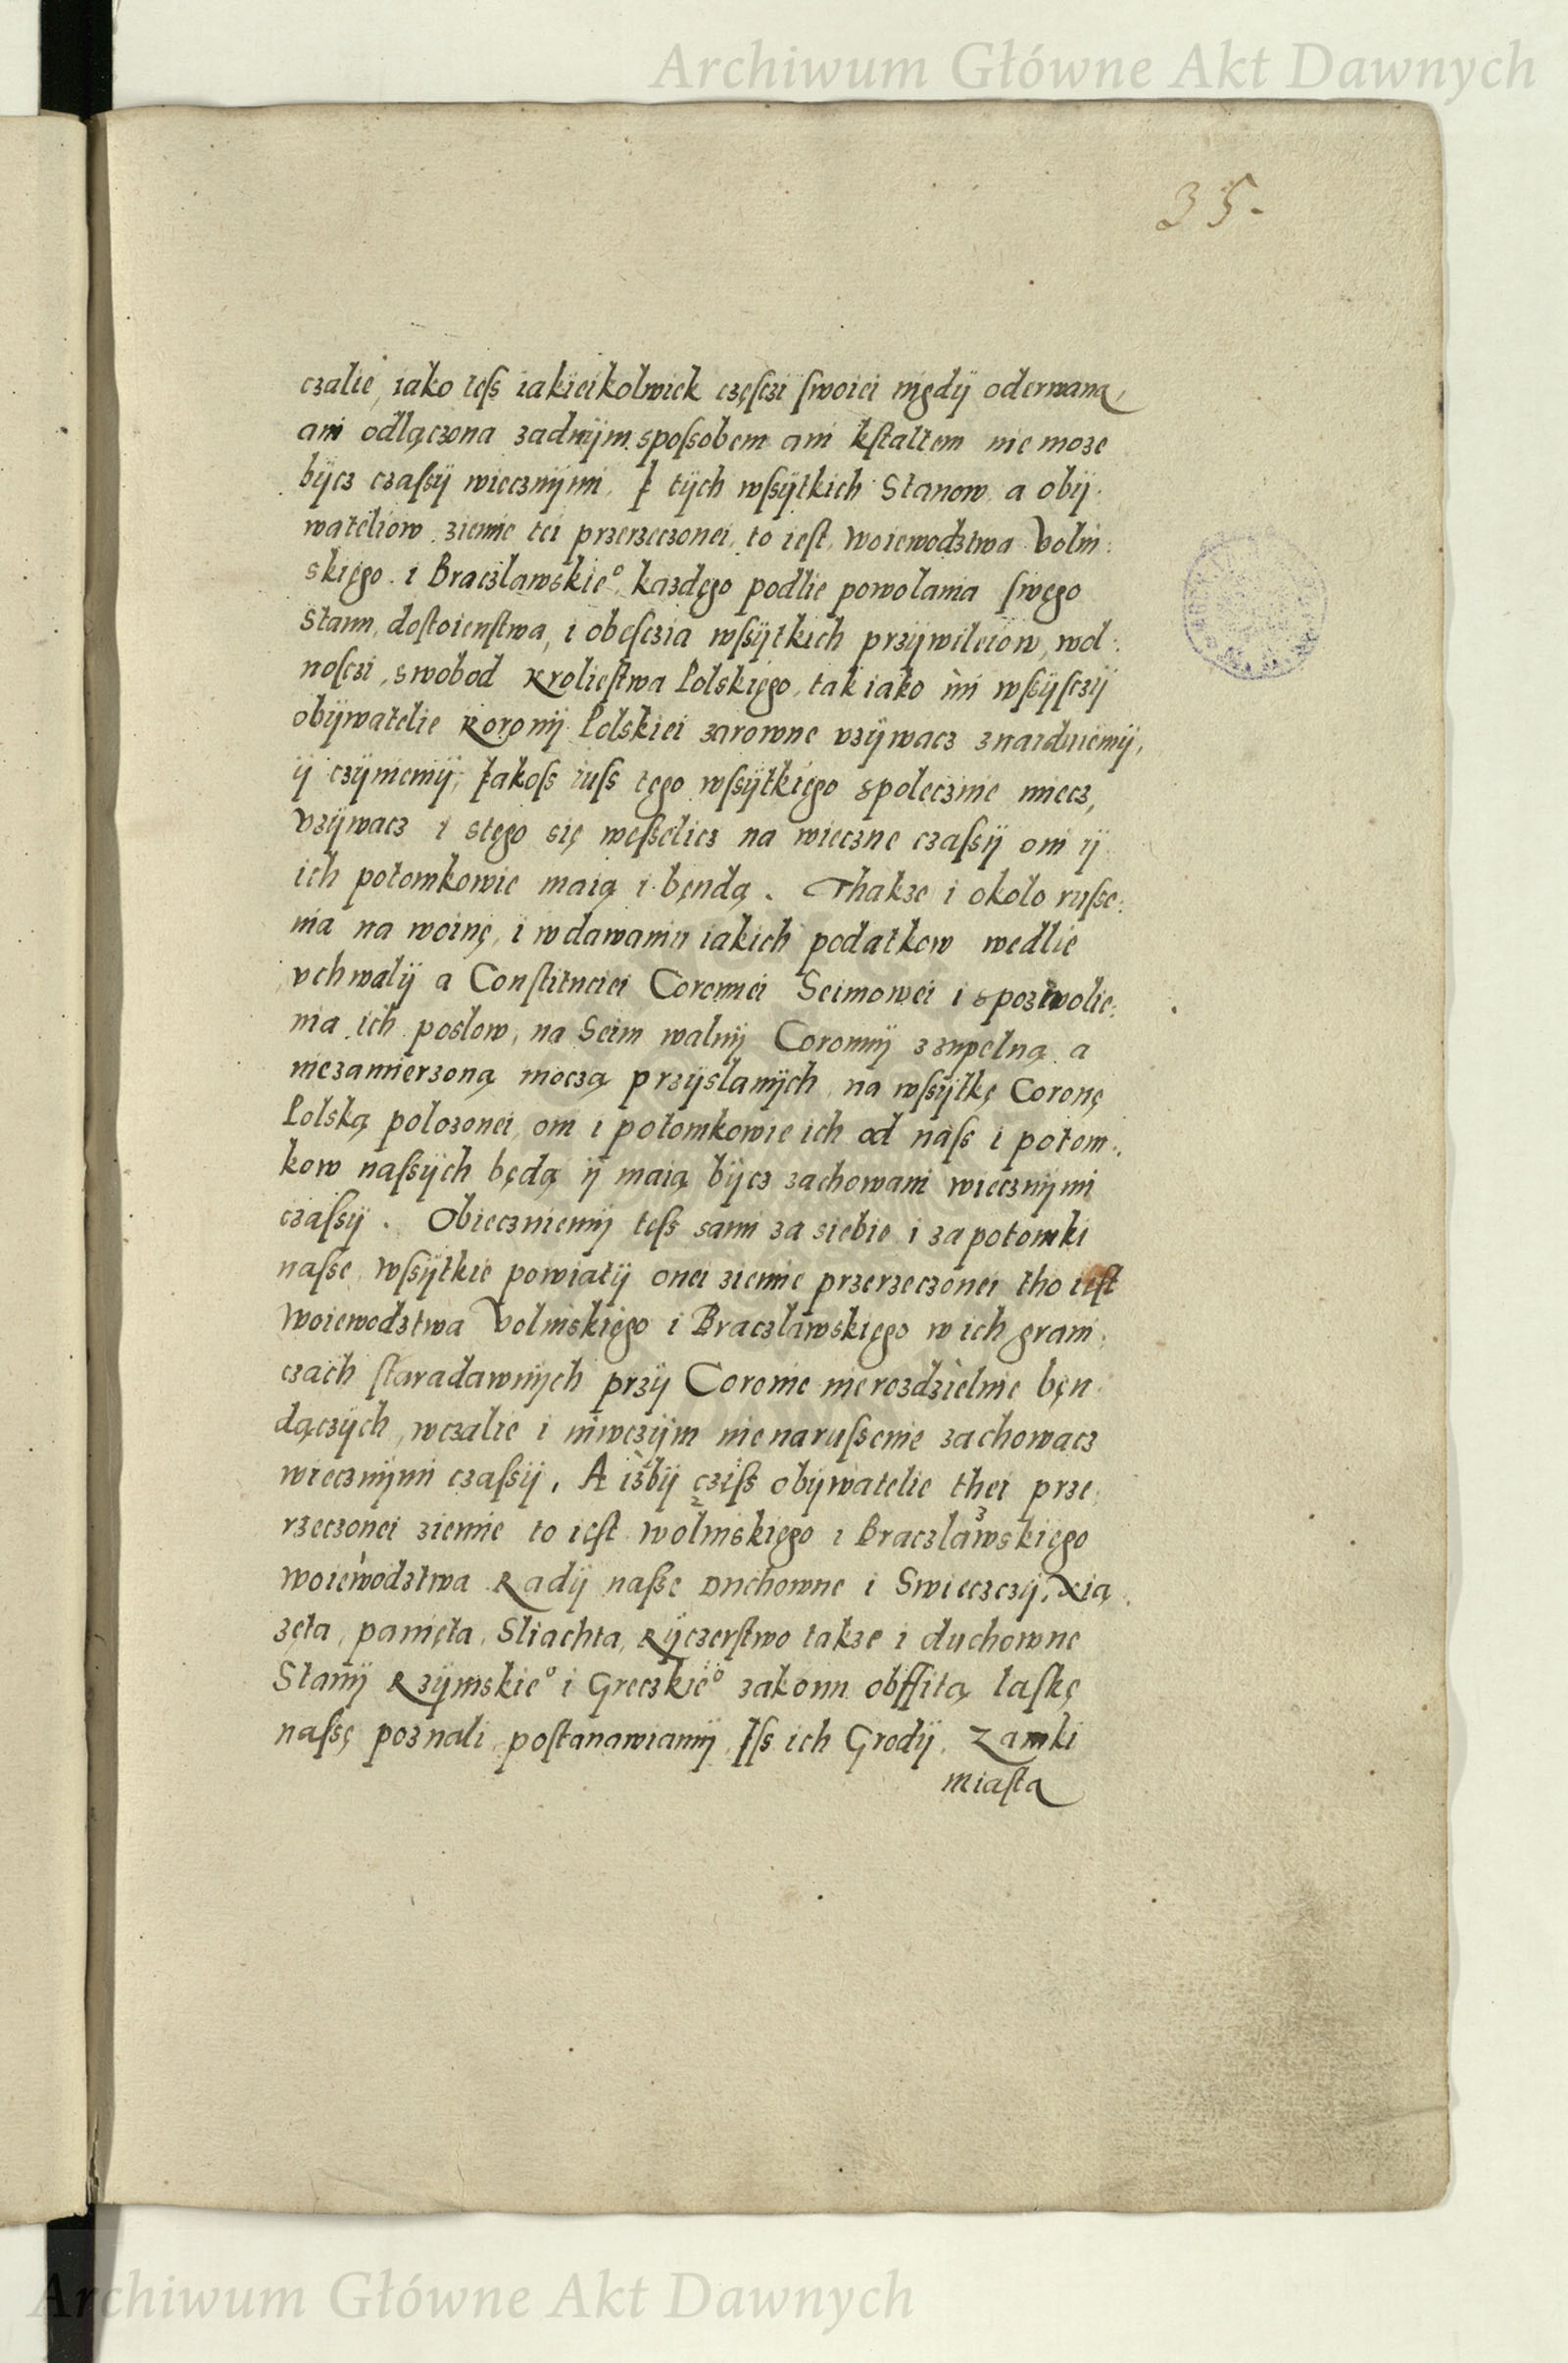 Archiwum Główne Akt Dawnych
35.
czalie, iako teſs iakieikolwiek częſczi ſwoiei nigdÿ oderwana,
ani odlączona zadnÿm spoſsobem ani kſtaltem nie moze
bÿcz czaſsÿ wiecznÿmi. I tÿch wſsÿtkich Stanow a obÿ:
wateliow ziemie tei przerzeczonei, to ieſt, Woiewodztwa Volin:
skięgo i Braczlawskie° kazdęgo podlie powolania ſwęgo
Stanu, doſtoienſtwa, i obeſczia wſsÿtkich przÿwileiow, wol:
noſczi, swobod Krolieſtwa Polskięgo, tak iako ini wſsÿſczÿ
obÿwatelie Koronÿ Polskiei zarowne vzÿwacz znaiduiemÿ,
ÿ czÿniemÿ, Iakoſs iuſs tęgo wſsÿtkięgo spolecznie miecz,
vzÿwacz i stęgo się weſselicz na wieczne czaſsÿ oni ÿ
ich potomkowie maią i będą. Thakze i okolo ruſse:
nia na woinę, i wdawaniu iakich podatkow wedlie
vchwalÿ a Conſtituciei Coronnei Seimowei i spozwolie:
nia ich poslow, na Seim walnÿ Coronnÿ zzupelną a
niezamierzoną moczą przÿslanÿch, na wſsÿtkę Coronę
Polską polozonei, oni i potomkowie ich od naſs i potom:
kow naſsÿch będą ÿ maią bÿcz zachowani wiecznÿmi
czaſsÿ. Obieczuiemÿ teſs sami za siebie i za potomki
naſse, wſsÿtkie powiatÿ onei ziemie przerzeczonei tho ieſt
Woiewodztwa Volinskięgo i Braczlawskięgo w ich grani:
czach ſtaradawnÿch przÿ Coronie nierozdzielnie bęn:
dączÿch, wczalie i niwczÿm nienaruſsenie zachowacz
wiecznÿmi czaſsÿ. A izbÿ cziſs obÿwatelie thei prze:
rzeczonei ziemie to ieſt wolinskięgo i Braczlawskięgo
woiewodztwa Radÿ naſse Duchowne i Swieczczÿ, Xią:
zęta, panięta, Sliachta, Rÿczerſtwo takze i duchowne
Stanÿ Rzÿmskie° i Greczkie° zakonu obffitą laſkę
naſsę poznali, poſtanawiamÿ, Iſs ich Grodÿ, Zamki
miaſta
Archiwum Główne Akt Dawnych